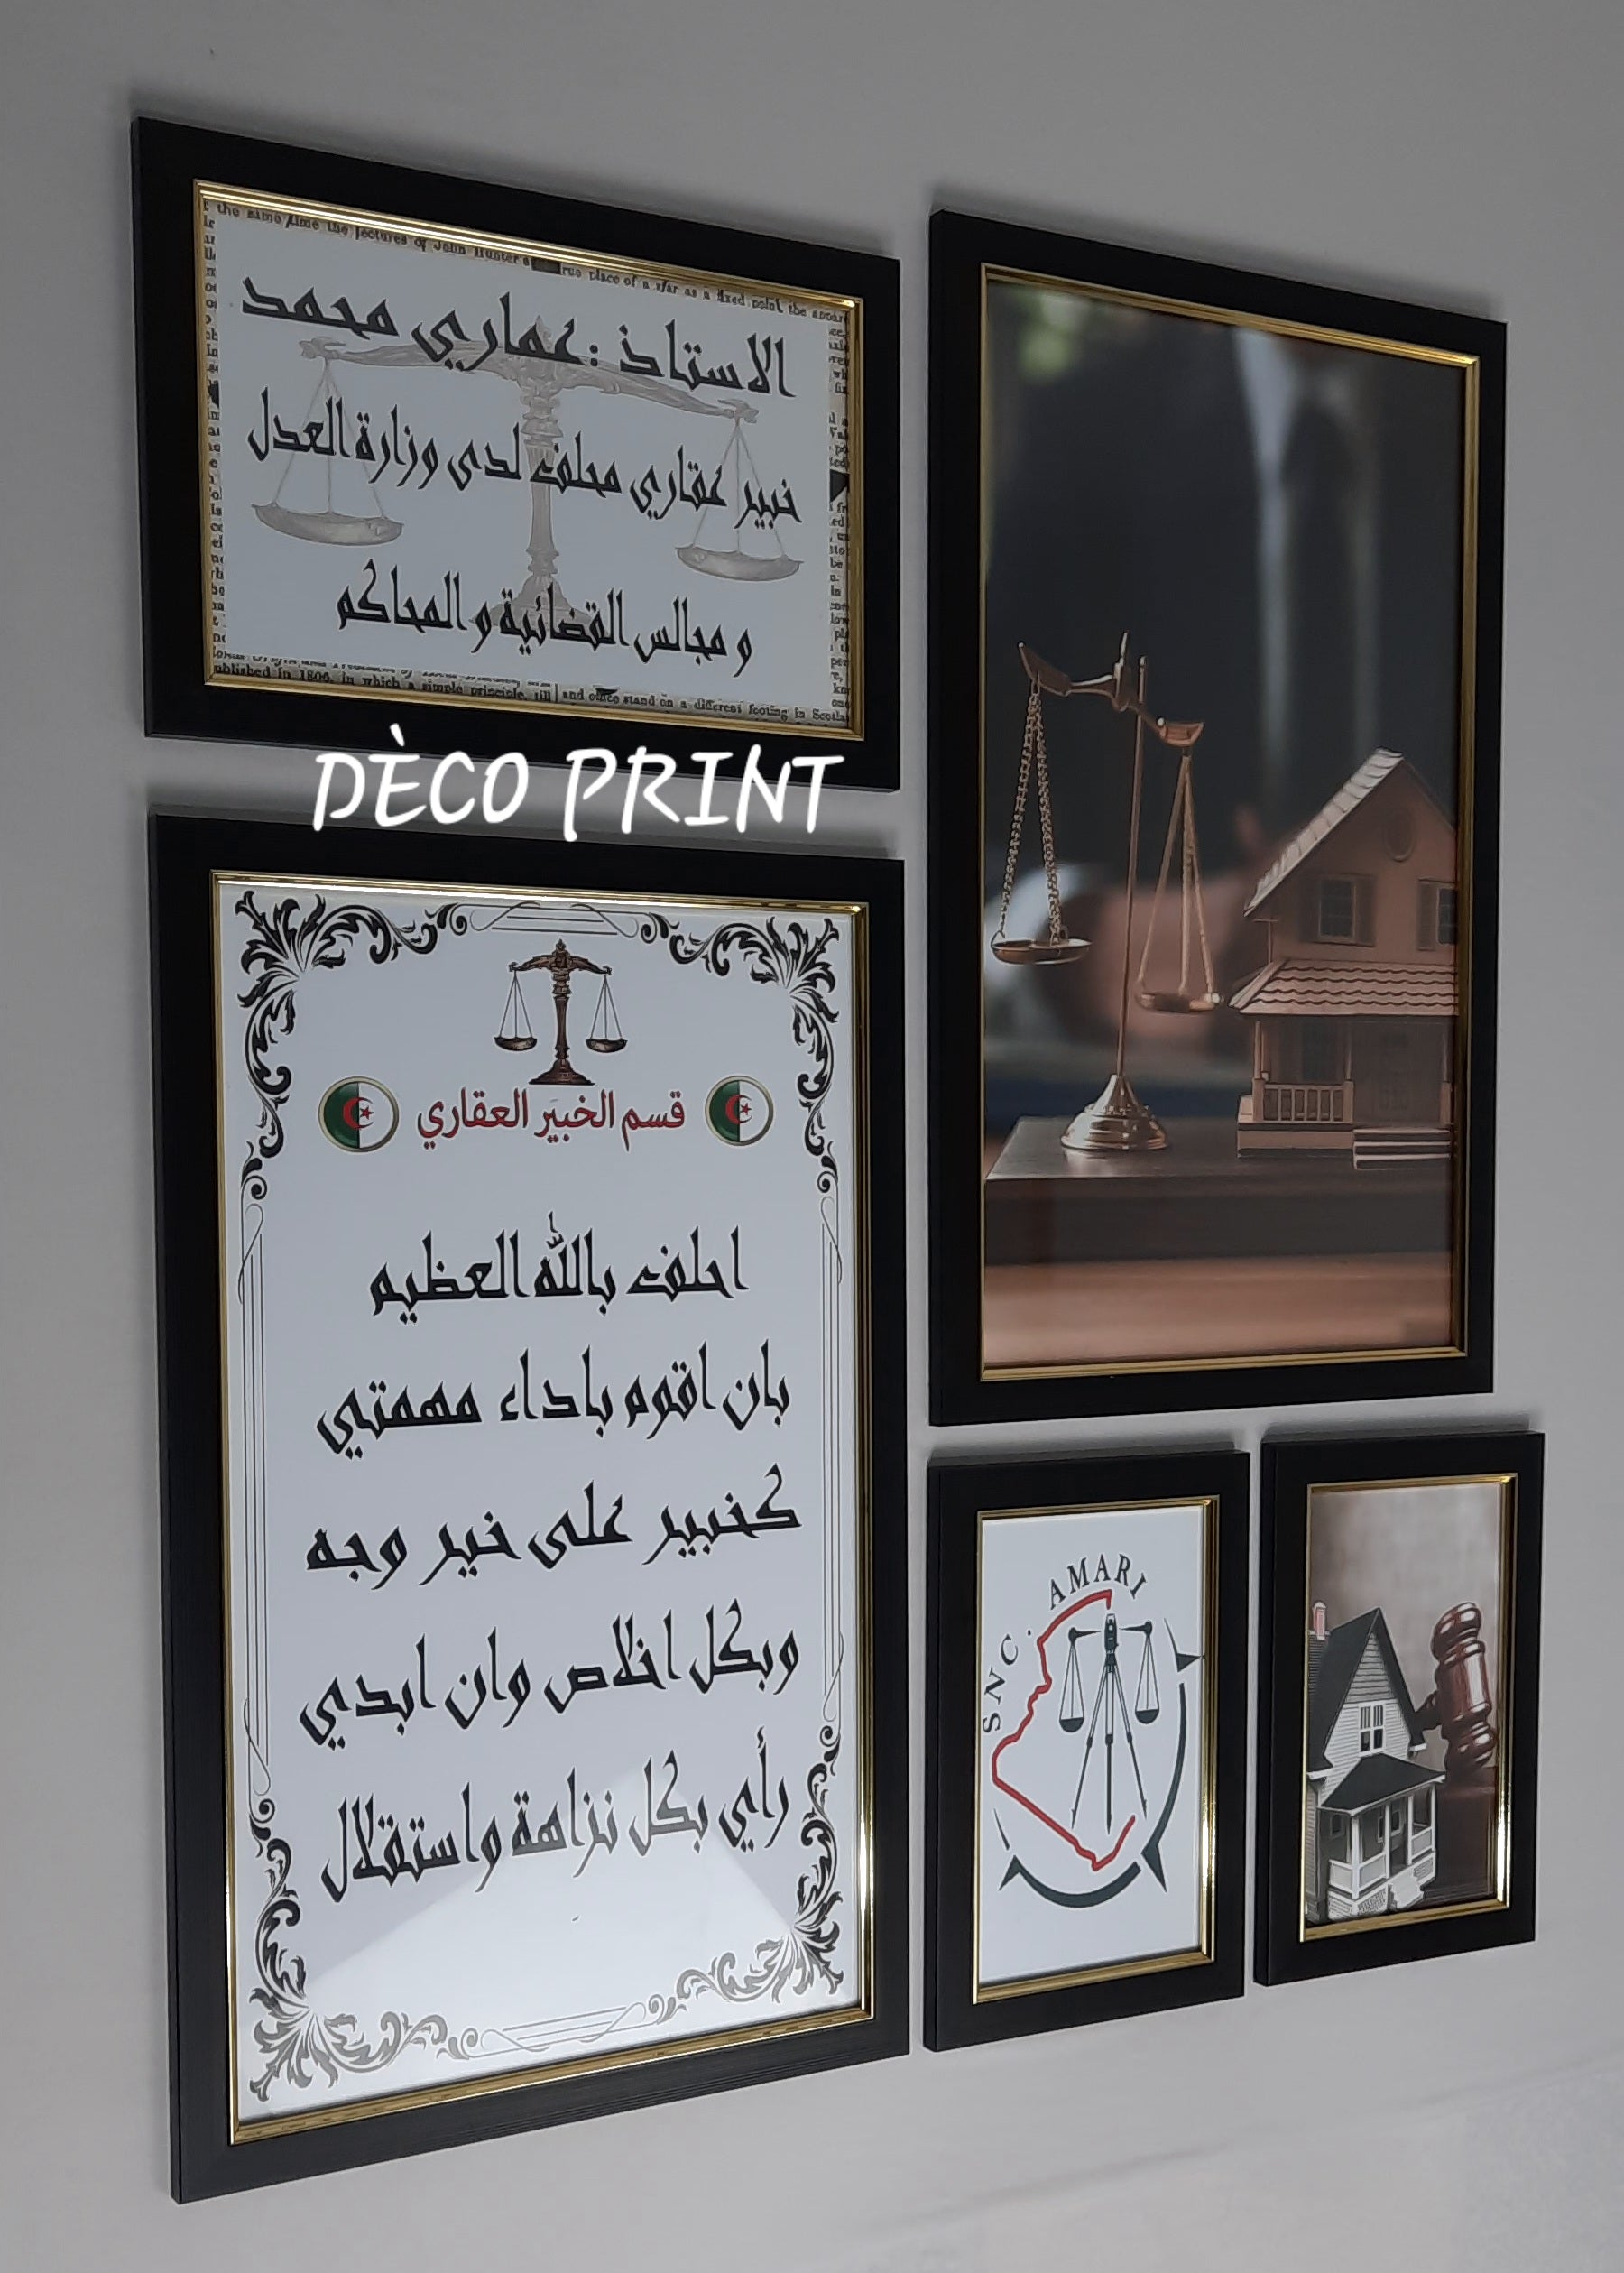 the same time the lectures of John Hunter
rue place of a star as a fixed point the
الاستاذ : عماري محمد
خبير عقاري محلف لدى وزارة العدل
و مجالس القضائية و المحاكم
ublished in 1806, in which a simple principle, till
and once stand on a different footing in Scotla
DÈCO PRINT
قسم الخبير العقاري
احلف بالله العظيم
بان اقوم باداء مهمتي
كخبير على خير وجه
وبكل اخلاص وان ابدي
رأي بكل نزاهة واستقلال
SNC. AMARI